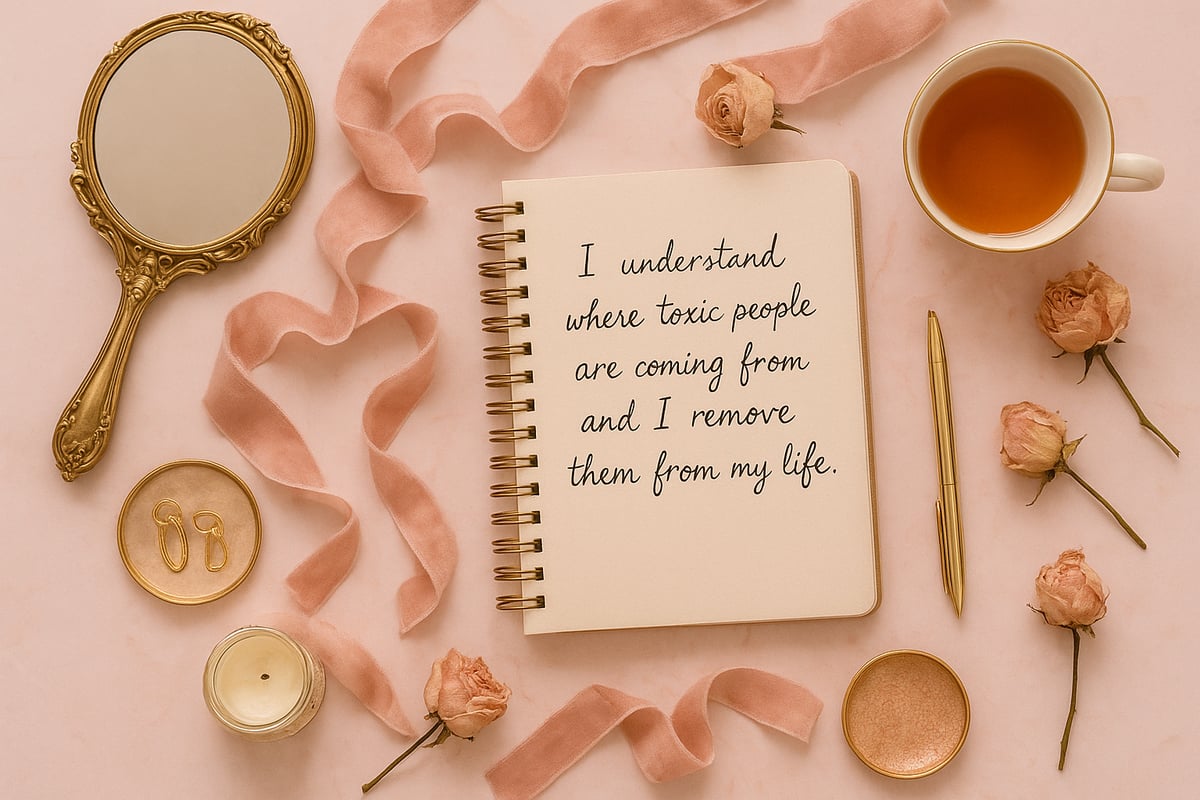 I understand
where toxic people
are coming from
and I remove
them from my life.